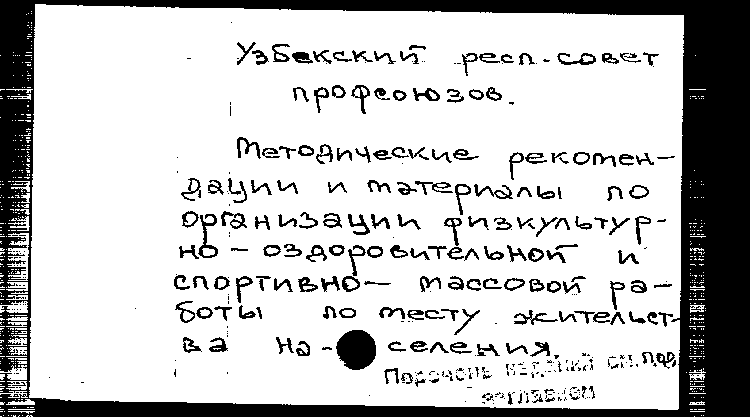 Узбекский респ. совет
профсоюзов.
Методические рекомен-
дации и материалы по
организации физкультур-
но-оздоровительной и
спортивно-массовой ра-
боты по месту жительст-
ва на-селения.
Перечень изданий см. под
заглавием